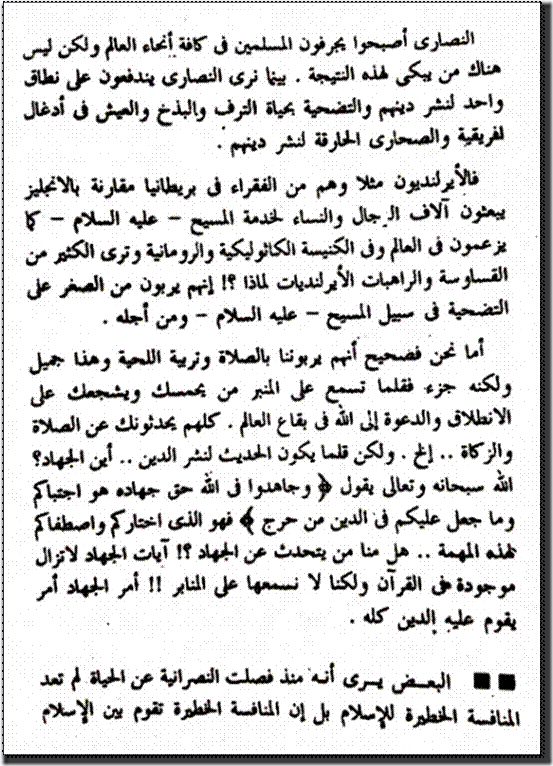 النصارى أصبحوا يجرفون المسلمين فى كافة أنحاء العالم ولكن ليس
هناك من يبكى لهذه النتيجة . بينما نرى النصارى يندفعون على نطاق
واحد لنشر دينهم والتضحية بحياة الترف والبذخ والعيش فى أدغال
لفريقية والصحارى الحارقة لنشر دينهم .
فالأيرلنديون مثلا وهم من الفقراء فى بريطانيا مقارنة بالانجليز
يبعثون آلاف الرجال والنساء لخدمة المسيح – عليه السلام – كما
يزعمون فى العالم وفى الكنيسة الكاثوليكية والرومانية وترى الكثير من
القساوسة والراهبات الأيرلنديات لماذا ؟! إنهم يربون من الصغر على
التضحية فى سبيل المسيح – عليه السلام – ومن أجله .
أما نحن فصحيح أنهم يربوننا بالصلاة وتربية اللحية وهذا جميل
ولكنه جزء فقلما تسمع على المنبر من يحمسك ويشجعك على
الانطلاق والدعوة إلى الله فى بقاع العالم . كلهم يحدثونك عن الصلاة
والزكاة .. إلخ . ولكن قلما يكون الحديث لنشر الدين .. أين الجهاد؟
الله سبحانه وتعالى يقول ﴿ وجاهدوا فى الله حق جهاده هو اجتباكم
وما جعل عليكم فى الدين من حرج ﴾ فهو الذى اختاركم واصطفاكم
لهذه المهمة .. هل منا من يتحدث عن الجهاد ؟! آيات الجهاد لاتزال
موجودة فى القرآن ولكنا لا نسمعها على المنابر !! أمر الجهاد أمر
يقوم عليه الدين كله .
■■ البعض يرى أنه منذ فصلت النصرانية عن الحياة لم تعد
المنافسة الخطيرة للإسلام بل إن المنافسة الخطيرة تقوم بين الإسلام